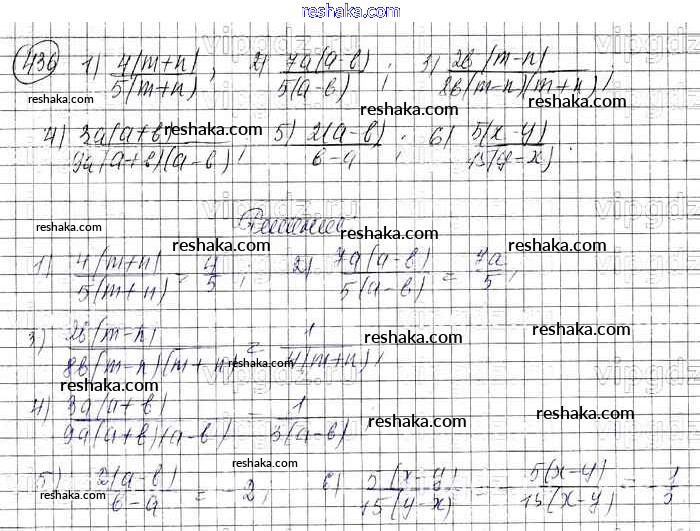 reshaka.com
436 1) 4(m+n)/5(m+n); 2) 7a(a-b)/5(a-b); 3) 2b(m-n)/2b(m-n)(m+n);
reshaka.com reshaka.com reshaka.com
4) 3a(a+b)/9a(a+b)(a-b); 5) 2(a-b)/b-a; 6) 5(x-y)/15(y-x).
reshaka.com reshaka.com
Решение
reshaka.com
1) 4(m+n)/5(m+n) = 4/5; 2) 7a(a-b)/5(a-b) = 7a/5;
reshaka.com reshaka.com
3) 2b(m-n)/8b(m-n)(m+n) = 1/4(m+n);
reshaka.com reshaka.com
4) 3a(a+b)/9a(a+b)(a-b) = 1/3(a-b)
reshaka.com reshaka.com reshaka.com
5) 2(a-b)/b-a = -2; 6) 5(x-y)/15(y-x) = -5(x-y)/15(x-y) = -1/3
reshaka.com reshaka.com reshaka.com